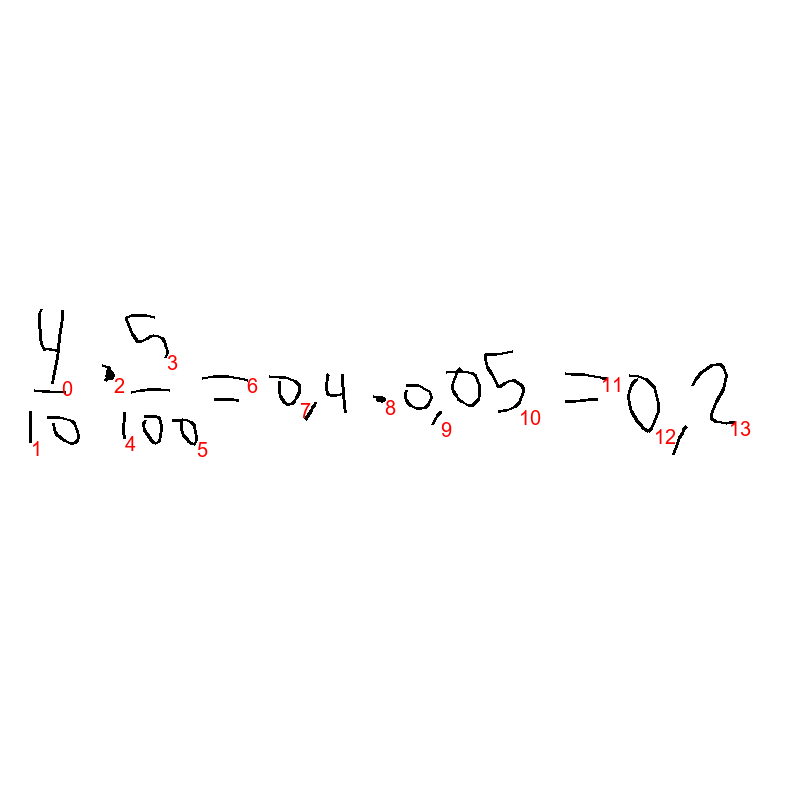 4/10 · 5/100 = 0,4 · 0,05 = 0,2
0 1 2 3 4 5 6 7 8 9 10 11 12 13